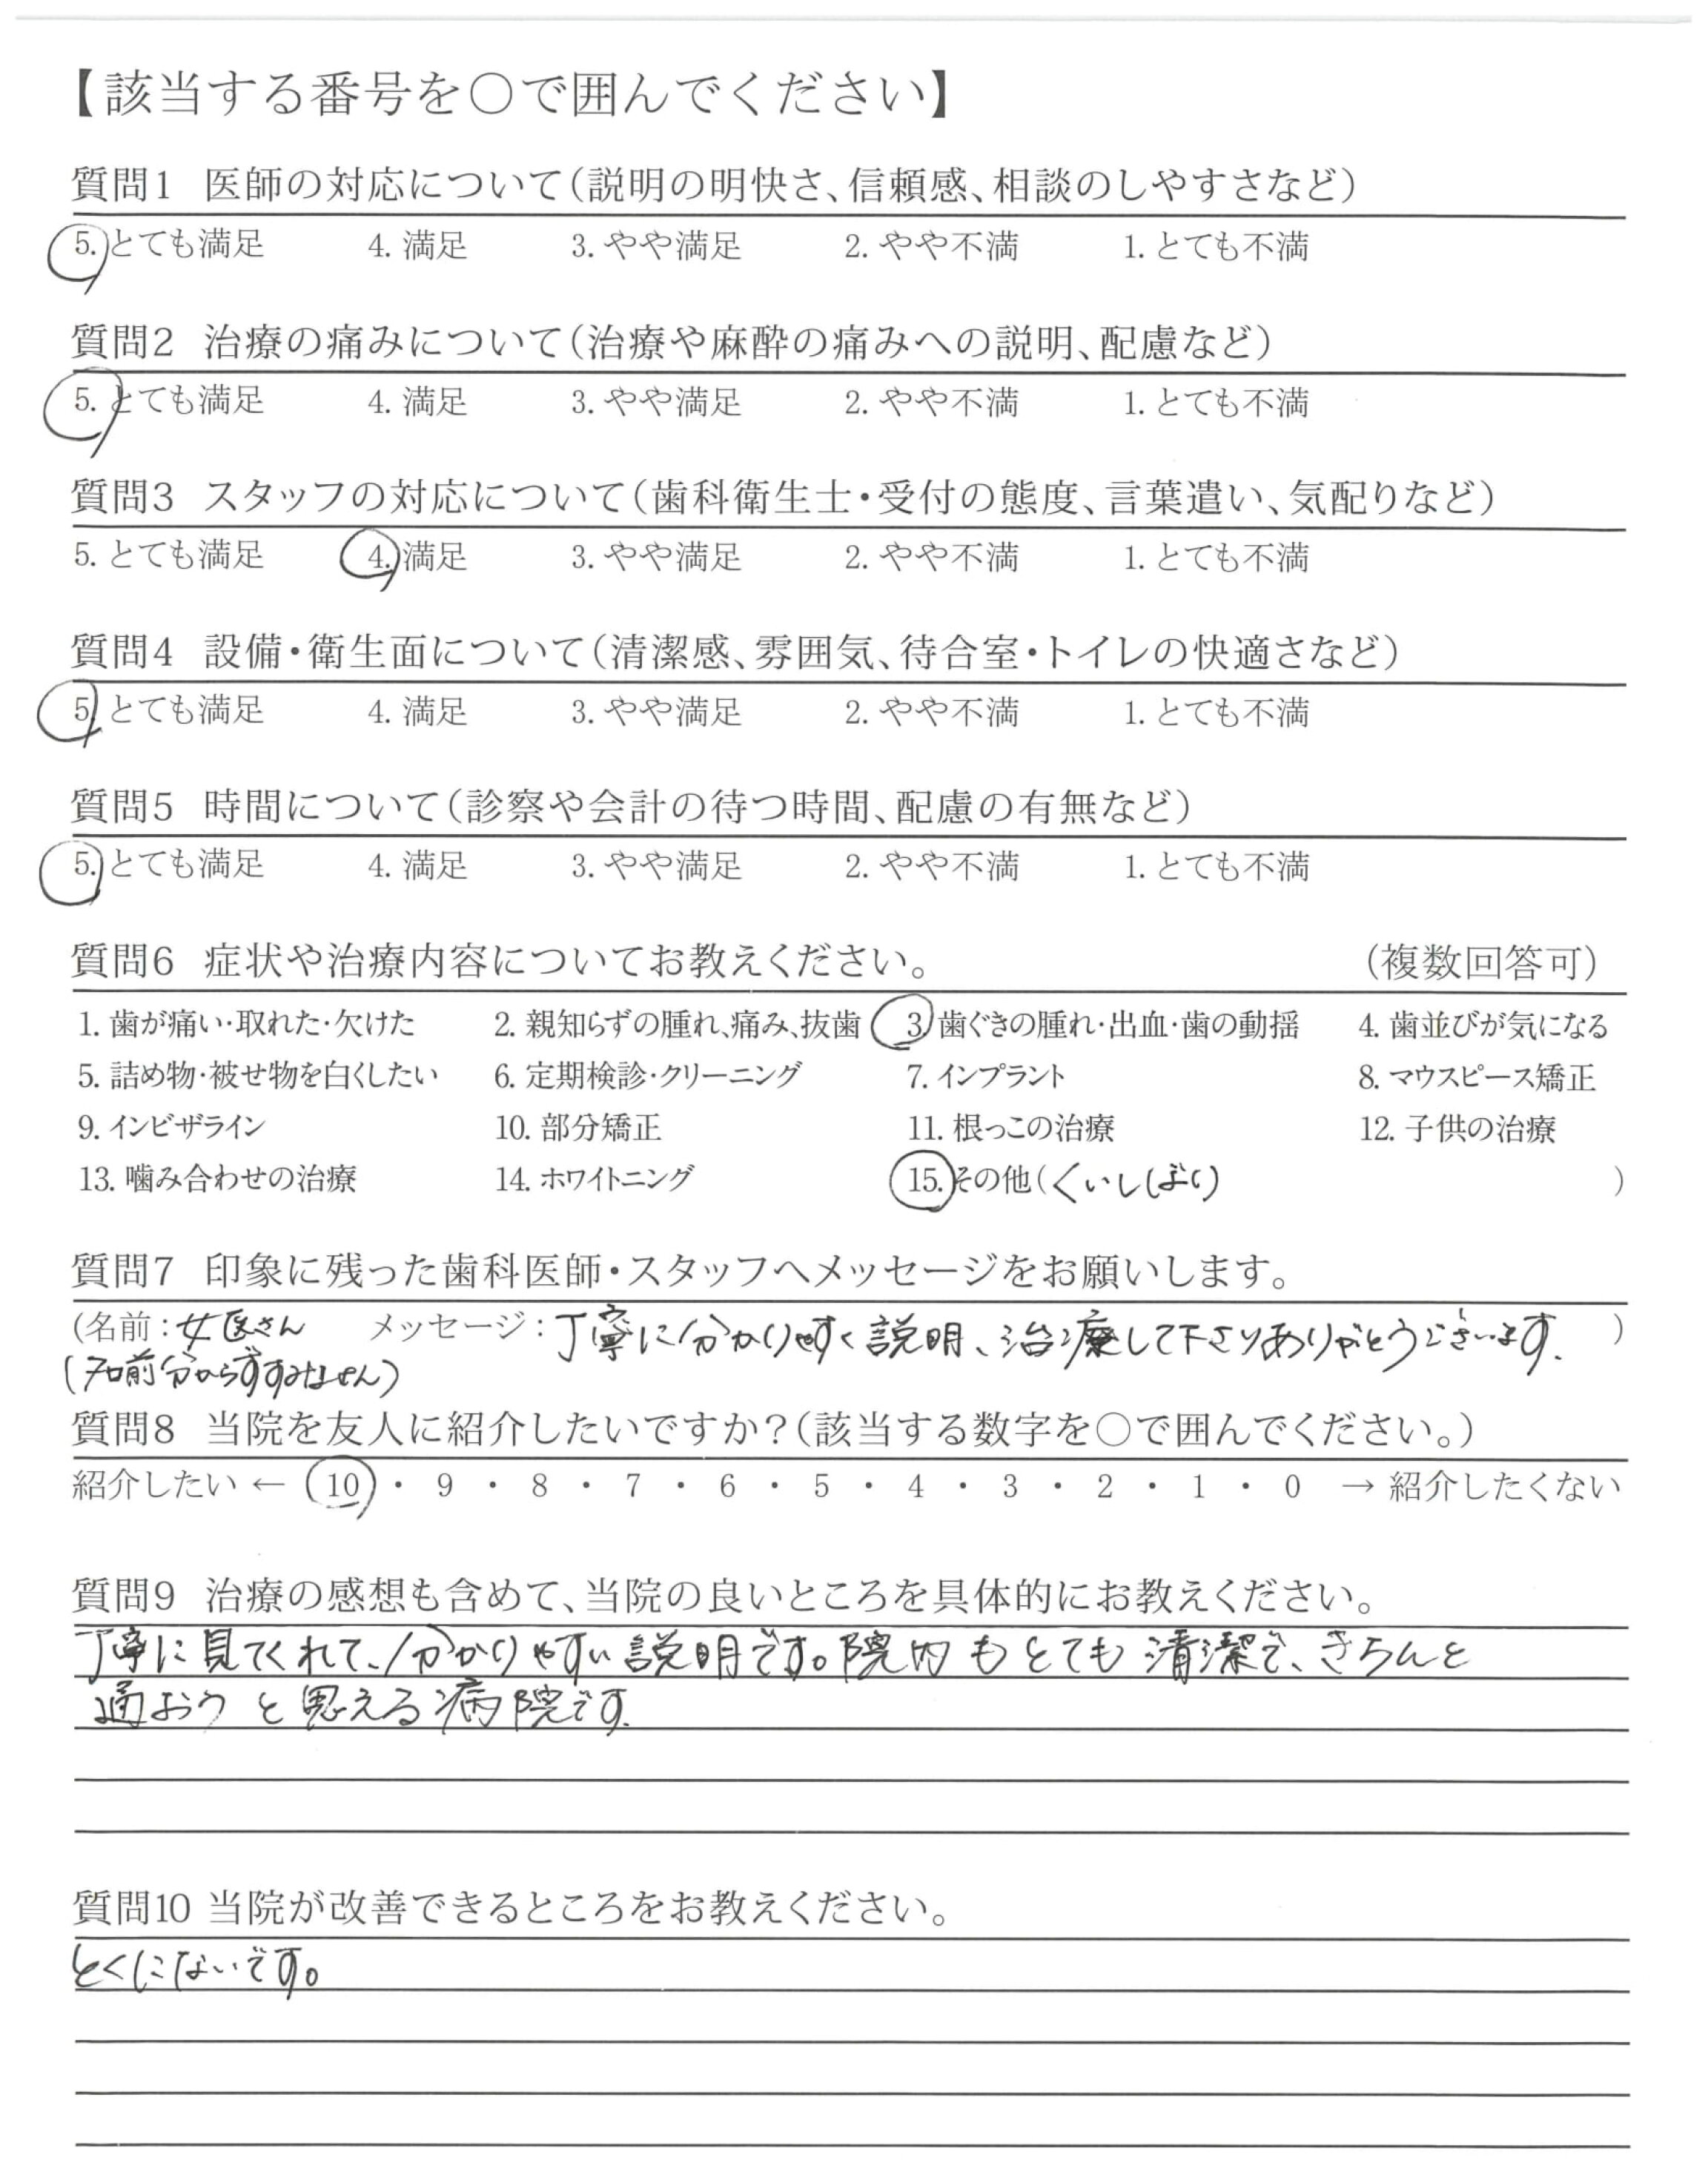 【該当する番号を○で囲んでください】
質問1 医師の対応について(説明の明快さ、信頼感、相談のしやすさなど)
5. とても満足 4. 満足 3. やや満足 2. やや不満 1. とても不満
質問2 治療の痛みについて(治療や麻酔の痛みへの説明、配慮など)
5. とても満足 4. 満足 3. やや満足 2. やや不満 1. とても不満
質問3 スタッフの対応について(歯科衛生士・受付の態度、言葉遣い、気配りなど)
5. とても満足 4. 満足 3. やや満足 2. やや不満 1. とても不満
質問4 設備・衛生面について(清潔感、雰囲気、待合室・トイレの快適さなど)
5. とても満足 4. 満足 3. やや満足 2. やや不満 1. とても不満
質問5 時間について(診察や会計の待つ時間、配慮の有無など)
5. とても満足 4. 満足 3. やや満足 2. やや不満 1. とても不満
質問6 症状や治療内容についてお教えください。 (複数回答可)
1. 歯が痛い・取れた・欠けた 2. 親知らずの腫れ、痛み、抜歯 3. 歯ぐきの腫れ・出血・歯の動揺 4. 歯並びが気になる
5. 詰め物・被せ物を白くしたい 6. 定期検診・クリーニング 7. インプラント 8. マウスピース矯正
9. インビザライン 10. 部分矯正 11. 根っこの治療 12. 子供の治療
13. 噛み合わせの治療 14. ホワイトニング 15. その他(くいしばり )
質問7 印象に残った歯科医師・スタッフへメッセージをお願いします。
(名前:女医さん メッセージ:丁寧に分かりやすく説明、治療して下さりありがとうございます. )
(名前分からずすみません)
質問8 当院を友人に紹介したいですか?(該当する数字を○で囲んでください。)
紹介したい ← 10 ・ 9 ・ 8 ・ 7 ・ 6 ・ 5 ・ 4 ・ 3 ・ 2 ・ 1 ・ 0 → 紹介したくない
質問9 治療の感想も含めて、当院の良いところを具体的にお教えください。
丁寧に見てくれて、分かりやすい説明です。院内もとても清潔で、きちんと
通おうと思える病院です.
質問10 当院が改善できるところをお教えください。
とくにないです。